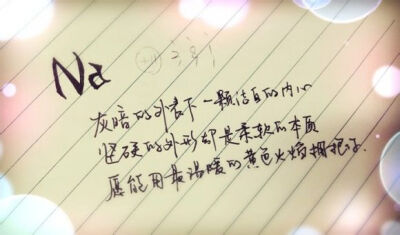 Na
灰暗的外表下一颗洁白的内心
坚硬的外形却是柔软的本质
愿能用最温暖的黄色火焰拥抱你.